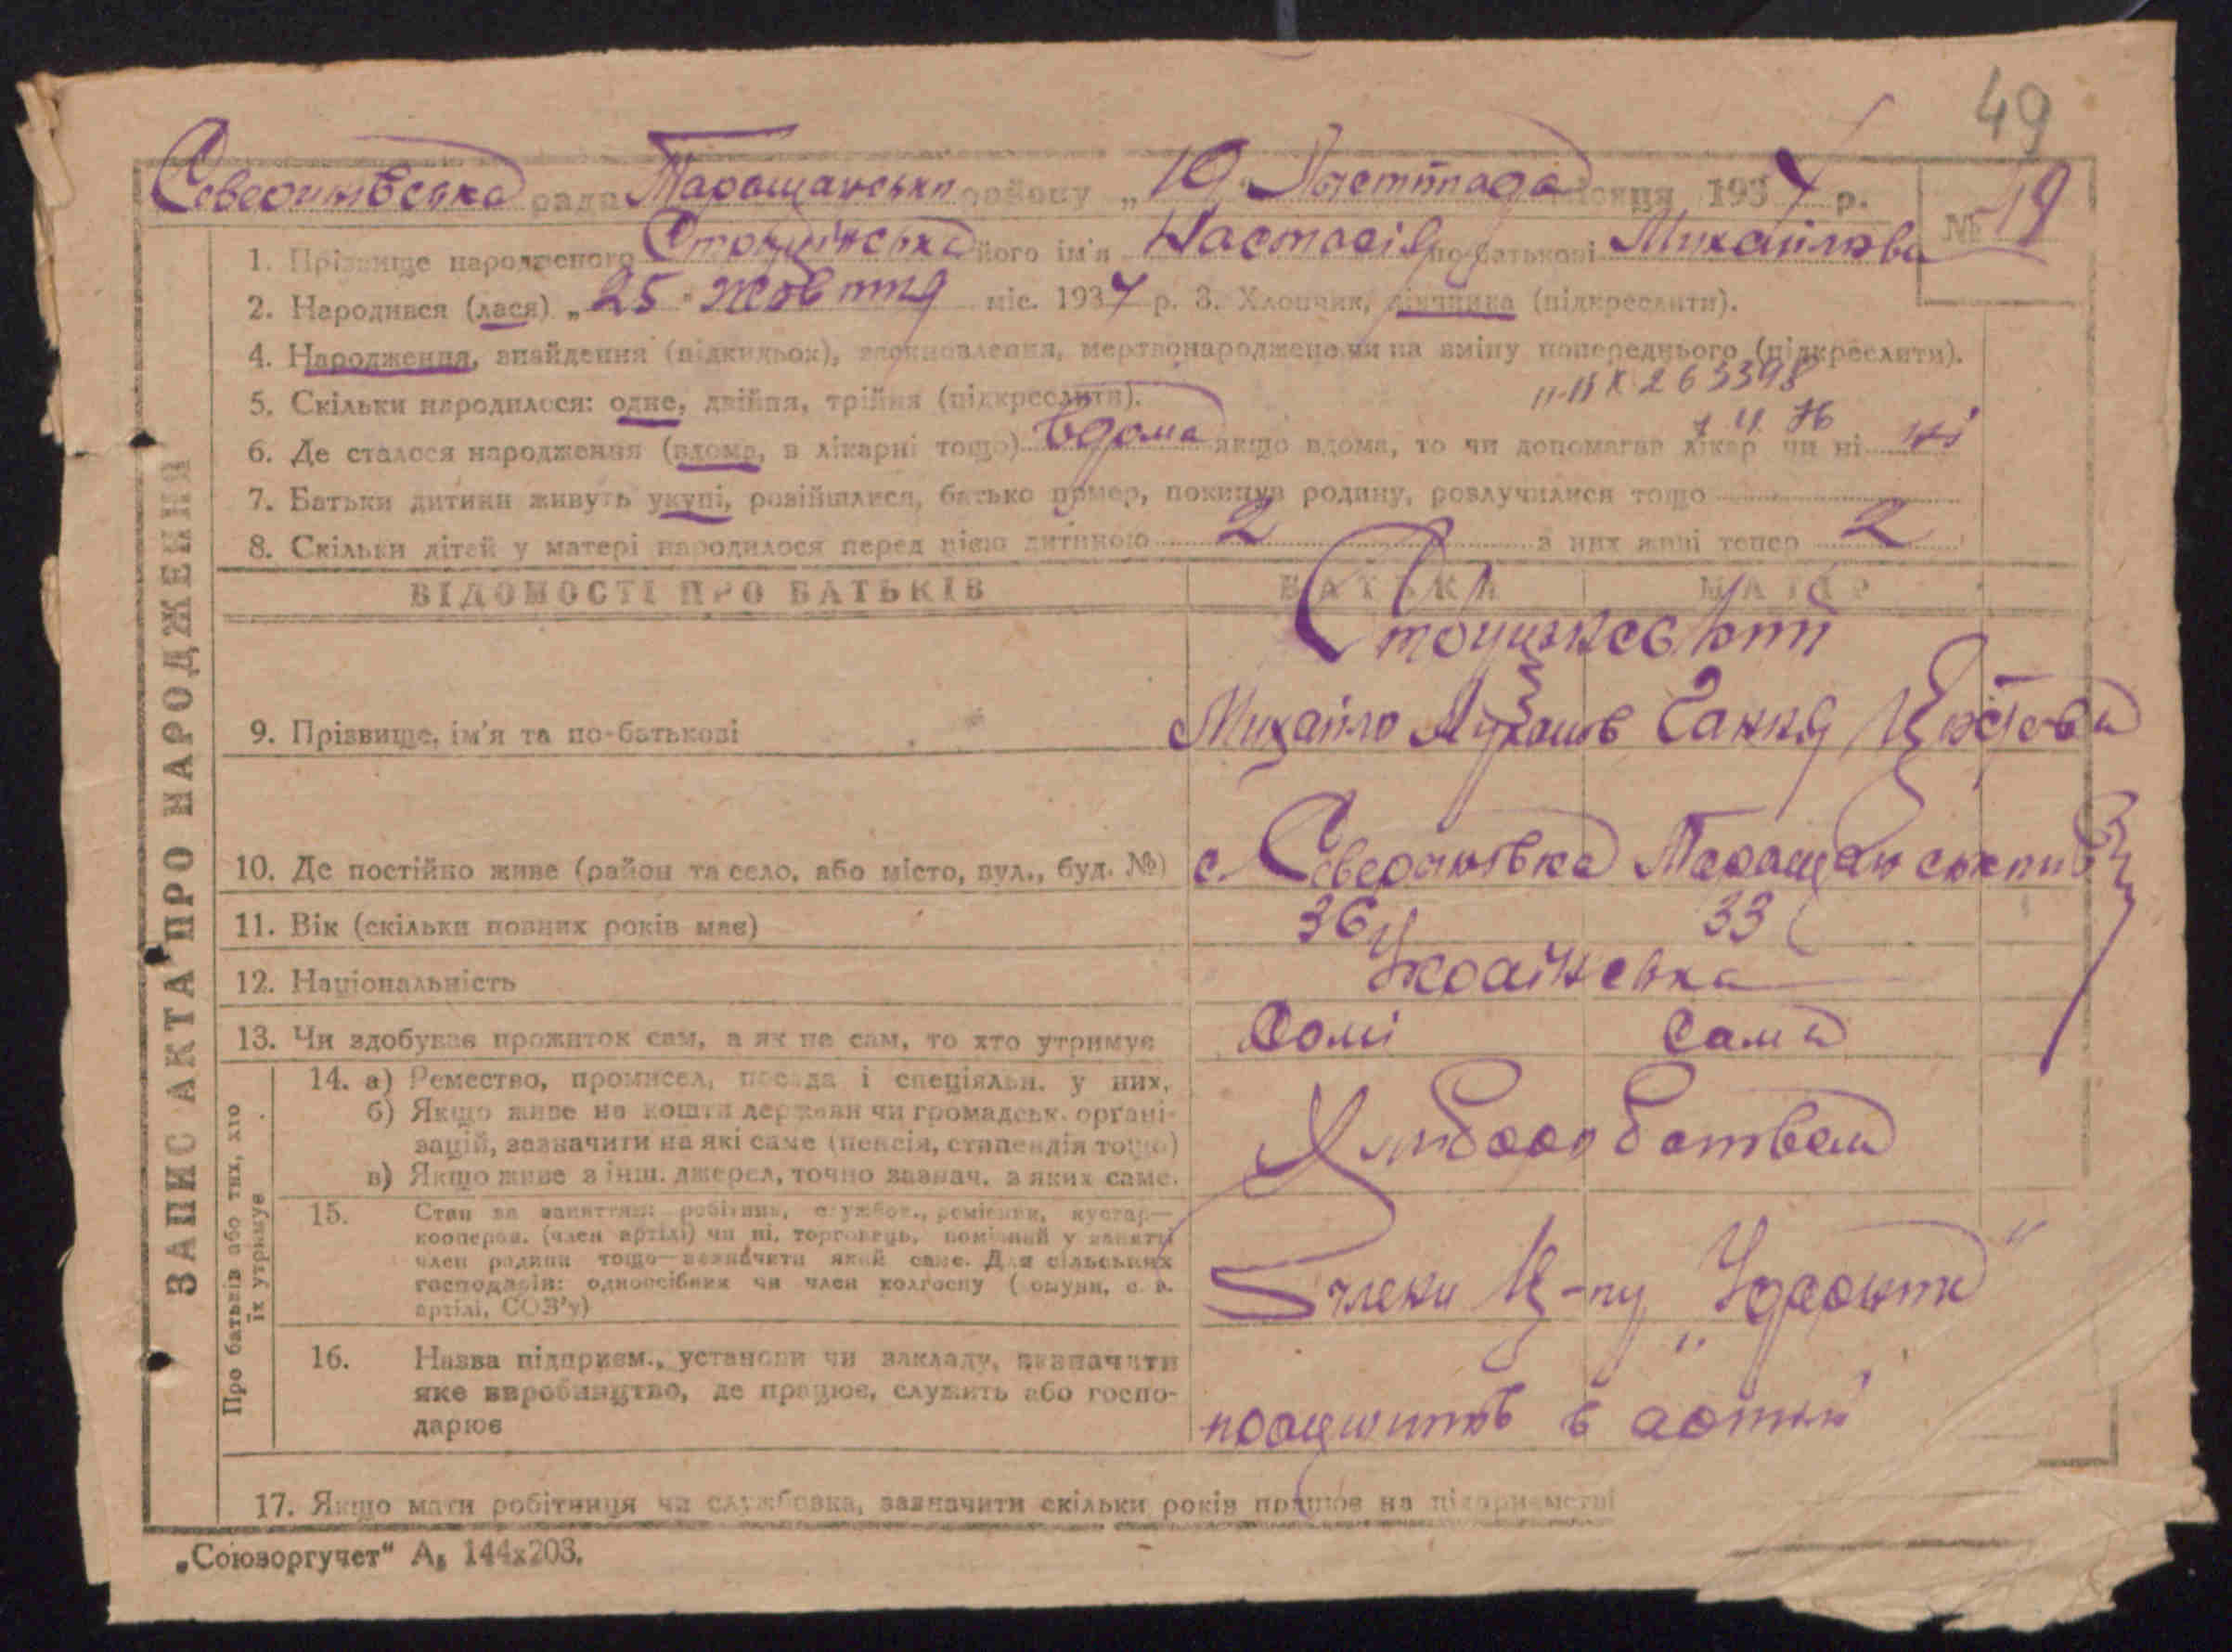 49
Северинівська рада Таращанськи району „19" Листопада місяця 1937 р. № 19
1. Прізвище народженого його ім'я Настасія по-батькові Михайлова
2. Народився (лася) „25" жовтня міс. 1937 р. 3. Хлопчик, дівчинка (підкреслити).
4. Народження, знайдення (підкидьок), мертвонароджене чи на зміну попереднього (підкреслити).
5. Скільки народилося: одне, двійня, трійня (підкреслити).
263398
6. Де сталося народження (вдома, в лікарні тощо) вдома якщо вдома, то чи допомагав лікар чи ні ні
7. Батьки дитини живуть укупі, розійшлися, батько помер, покинув родину, розлучилися тощо
8. Скільки дітей у матері народилося перед цією дитиною 2 з них живі тепер 2
ВІДОМОСТІ ПРО БАТЬКІВ БАТЬКА МАТІР
9. Прізвище, ім'я та по-батькові Михайло Ганна
10. Де постійно живе (район та село, або місто, вул., буд. №) с. Северинівка
11. Вік (скільки повних років має) 36 33
12. Національність Україінська
13. Чи здобуває прожиток сам, а як не сам, то хто утримує Сомі Сама
14. а) Ремество, промисел, посада і спеціяльн. у них,
б) Якщо живе на кошти держави чи громадськ. органі-
зацій, зазначити на які саме (пенсія, стипендія тощо)
в) Якщо живе з інш. джерел, точно зазнач. з яких саме.
15. Стан за заняттям: робітник, службов., ремісник, кустар—
кооперов. (член артілі) чи ні, торговець, помічний у занятті
член родини тощо—зазначити який саме. Для сільських
господарів: одноосібник чи член колгоспу (комуни, с. г.
артілі, СОЗ'у)
члени
16. Назва підприєм., установи чи закладу, зазначити
яке виробництво, де працює, служить або госпо-
дарює
в
17. Якщо мати робітниця чи службовка, зазначити скільки років працює на підприємстві
„Союзоргучет" А₅ 144х203.
ЗАПИС АКТА ПРО НАРОДЖЕННЯ
Про батьків або тих, хто
їх утримує